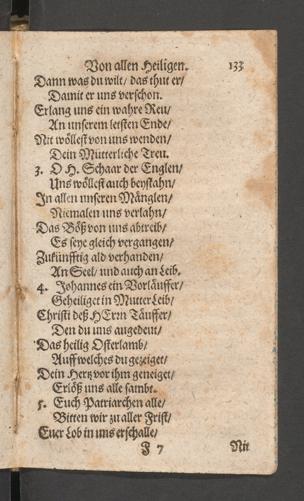 Von allen Heiligen. 133
Dann was du wilt/ das thut er/
Damit er uns verschon.
Erlang uns ein wahre Reu/
An unserem letsten Ende/
Nit wöllest von uns wenden/
Dein Mütterliche Treu.
3. O H. Schaar der Englen/
Uns wöllest auch beystahn/
In allen unseren Mänglen/
Niemalen uns verlahn/
Das Böß von uns abtreib/
Es seye gleich vergangen/
Zukünfftig ald verhanden/
An Seel/ und auch an Leib.
4. Johannes ein Vorläuffer/
Geheiliget in Mutter Leib/
Christi deß HErrn Täuffer/
Den du uns angedeut/
Das heilig Osterlamb/
Auff welches du gezeiget/
Dein Hertz vor ihm geneiget/
Erlöß uns alle sambt.
5. Euch Patriarchen alle/
Bitten wir zu aller Frist/
Euer Lob in uns erschalle/
J 7 Nit